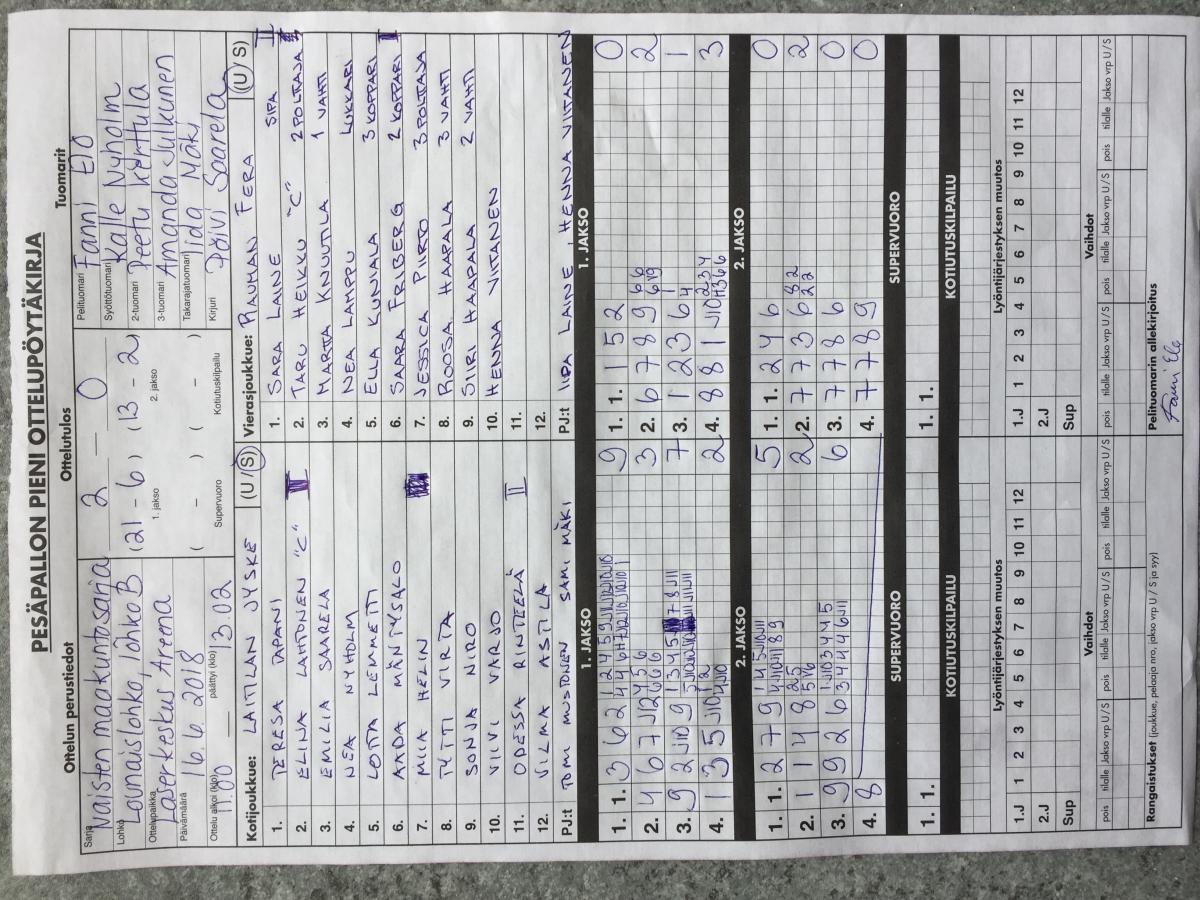 PESÄPALLON PIENI OTTELUPÖYTÄKIRJA
Ottelun perustiedot
Ottelutulos
Tuomarit
Sarja
Naisten maakuntosarja
Lohko
Lounaislohko, lohko B
Ottelupaikka
Laserkeskus Areena
Päivämäärä
16.6.2018
Ottelu alkoi (klo)
11.00
päättyi (klo)
13.02
2 — 0
(21 - 6) (13 - 2)
1. jakso 2. jakso
( - ) ( - )
Supervuoro Kotiutuskilpailu
Pelituomari Fanni Elo
Syöttötuomari Kalle Nyholm
2-tuomari Peetu Kerttula
3-tuomari Amanda Julkunen
Takarajatuomari Iida Mäki
Kirjuri Päivi Saarela
Kotijoukkue: LAITILAN JYSKE (U / S)
1. TERESA TAPANI
2. ELINA LAHTONEN "C" II
3. EMILIA SAARELA
4. NEA NYHOLM
5. LOTTA LEMMETTI
6. AADA MÄNTYSALO
7. MIIA HELIN
8. TYTTI VIRTA
9. SONJA NIRO
10. VIIVI VARJO
11. ODESSA RINTEELÄ II
12. VILMA ASTILA
PJ:t TOMI MUSTONEN SAMI MÄKI
Vierasjoukkue: RAUMAN FERA (U / S)
1. SARA LAINE SIPA II
2. TARU HEIKKU "C" 2 POLTTAJA
3. MARTTA KNUUTILA 1 VAHTI
4. NEA LAMPPU LUKKARI
5. ELLA KUNNALA 3 KOPPARI
6. SAARA FRIBERG 2 KOPPARI I
7. JESSICA PIIRTO 3 POLTTAJA
8. ROOSA HAAPALA 3 VAHTI
9. SIIRI HAAPALA 2 VAHTI
10. HENNA VIITANEN
11.
12.
PJ:t IIPA LAINE, HENNA VIITANEN
1. JAKSO 1. JAKSO
1. 1. 3 6 2 9
2. 4 6 7 3
3. 9 2 J10 9 7
4. 1 3 5 J10 2
1. 1. 1 5 2 0
2. 6 7 8 9 2
3. 1 2 3 6 1
4. 8 8 1 J10 3
2. JAKSO 2. JAKSO
1. 1. 2 7 9 5
2. 1 1 4 8 2
3. 9 9 2 6 6
4. 8
1. 1. 2 4 6 0
2. 7 7 3 6 2
3. 7 7 8 6 0
4. 7 7 8 9 0
SUPERVUORO SUPERVUORO
1. 1. 1. 1.
KOTIUTUSKILPAILU KOTIUTUSKILPAILU
Lyöntijärjestyksen muutos Lyöntijärjestyksen muutos
1.J 1 2 3 4 5 6 7 8 9 10 11 12 1.J 1 2 3 4 5 6 7 8 9 10 11 12
2.J 2.J
Sup Sup
Vaihdot Vaihdot
pois tilalle Jakso vrp U / S pois tilalle Jakso vrp U / S pois tilalle Jakso vrp U / S pois tilalle Jakso vrp U / S pois tilalle Jakso vrp U / S pois tilalle Jakso vrp U / S
Rangaistukset (joukkue, pelaaja nro, jakso vrp U / S ja syy)
Pelituomarin allekirjoitus
Fanni Elo